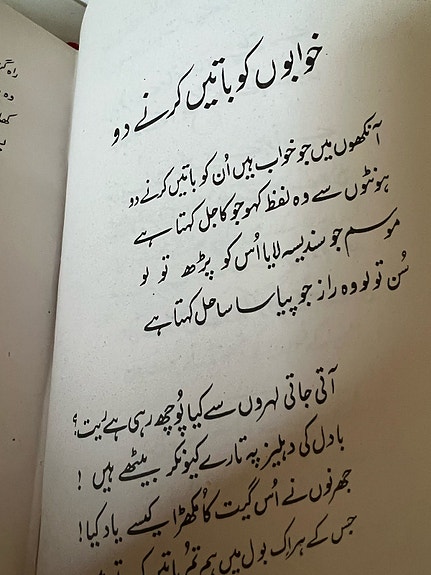 خوابوں کو باتیں کرنے دو
آنکھوں میں جو خواب ہیں اُن کو باتیں کرنے دو
ہونٹوں سے وہ لفظ کہو جو کاجل کہتا ہے
موسم جو سندیسہ لایا اُس کو پڑھ تو لو
سُن تو لو وہ راز جو پیاسا ساحل کہتا ہے
آتی جاتی لہروں سے کیا پُوچھ رہی ہے ریت؟
بادل کی دہلیز پہ تارے کیونکر بیٹھے ہیں !
جھرنوں نے اُس گیت کا مُکھڑا کیسے یاد کیا!
جس کے ہر اِک بول میں ہم تم باتیں کرتے